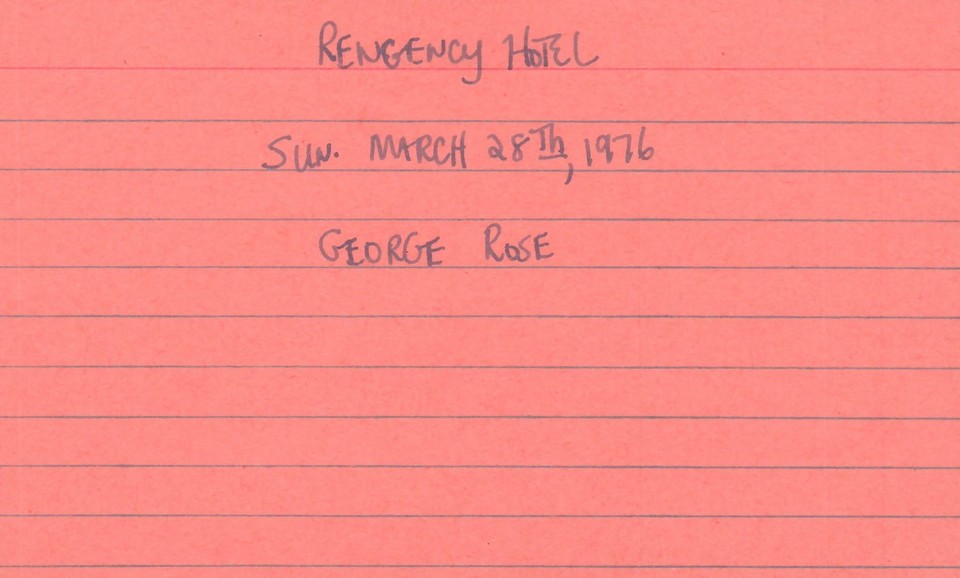 RENGENCY HOTEL
SUN. MARCH 28Th, 1976
GEORGE ROSE